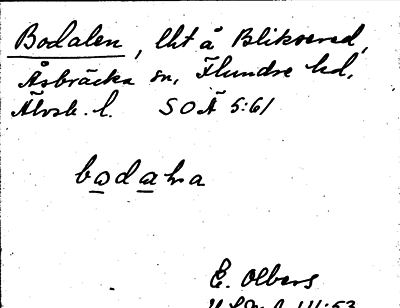 Bodalen, lht å Bliksered,
Åsbräcka sn, Flundre hd,
Älvsb. l. SOÄ 5:61
bodaka
E. Olbers